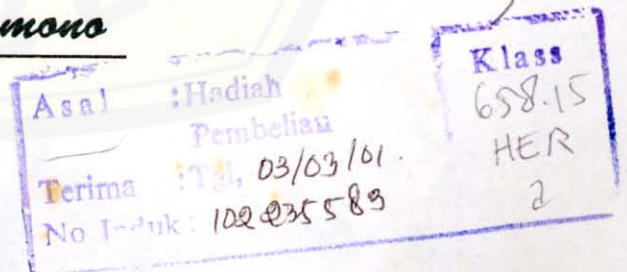 mono
Asal :Hadiah
Pembelian
Terima :Tgl, 03/03/01.
No Induk : 102 235 589
Klass
658.15
HER
a